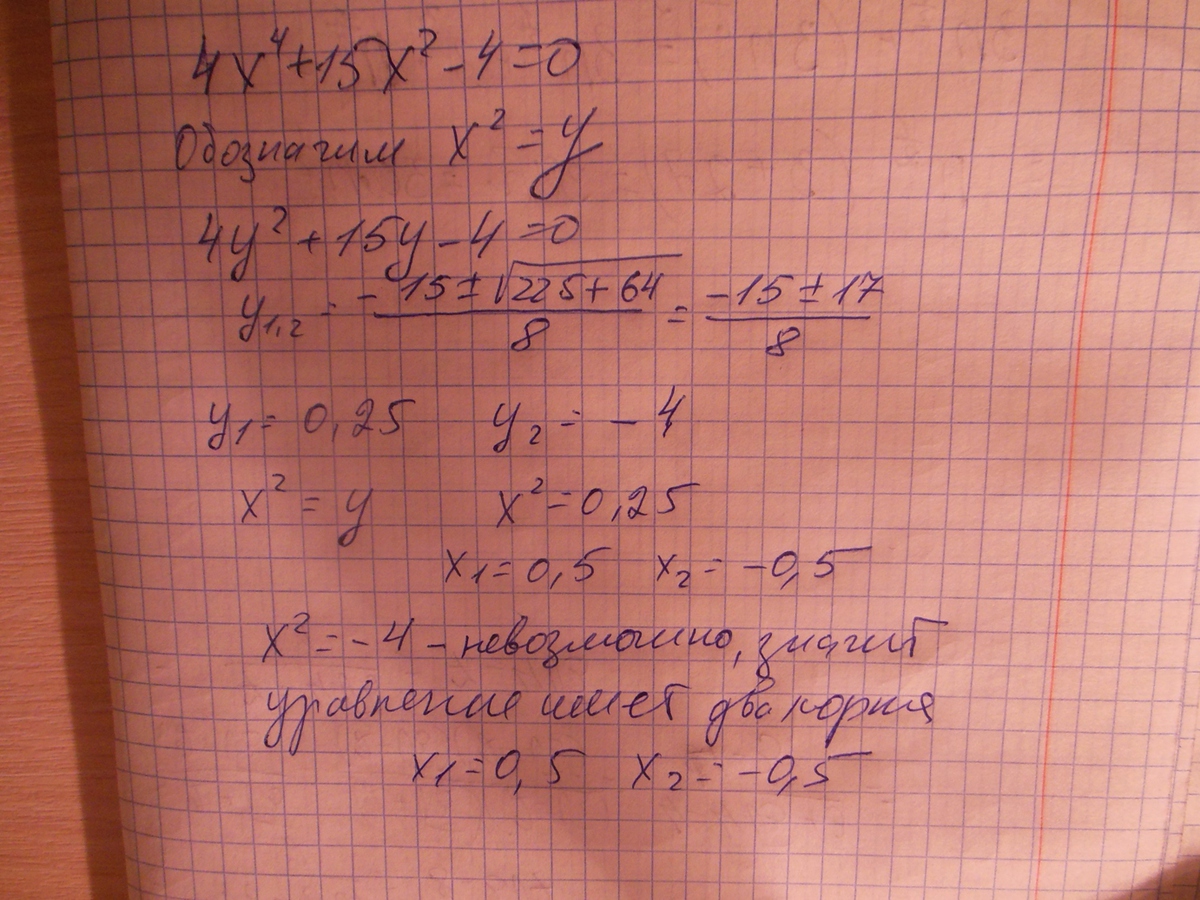 4x⁴+15x²-4=0
Обозначим x²=y
4y²+15y-4=0
y₁,₂ = -15±√225+64/8 = -15±17/8
y₁=0,25 y₂=-4
x²=y x²=0,25
x₁=0,5 x₂=-0,5
x²=-4 - невозможно, значит
уравнение имеет два корня
x₁=0,5 x₂=-0,5